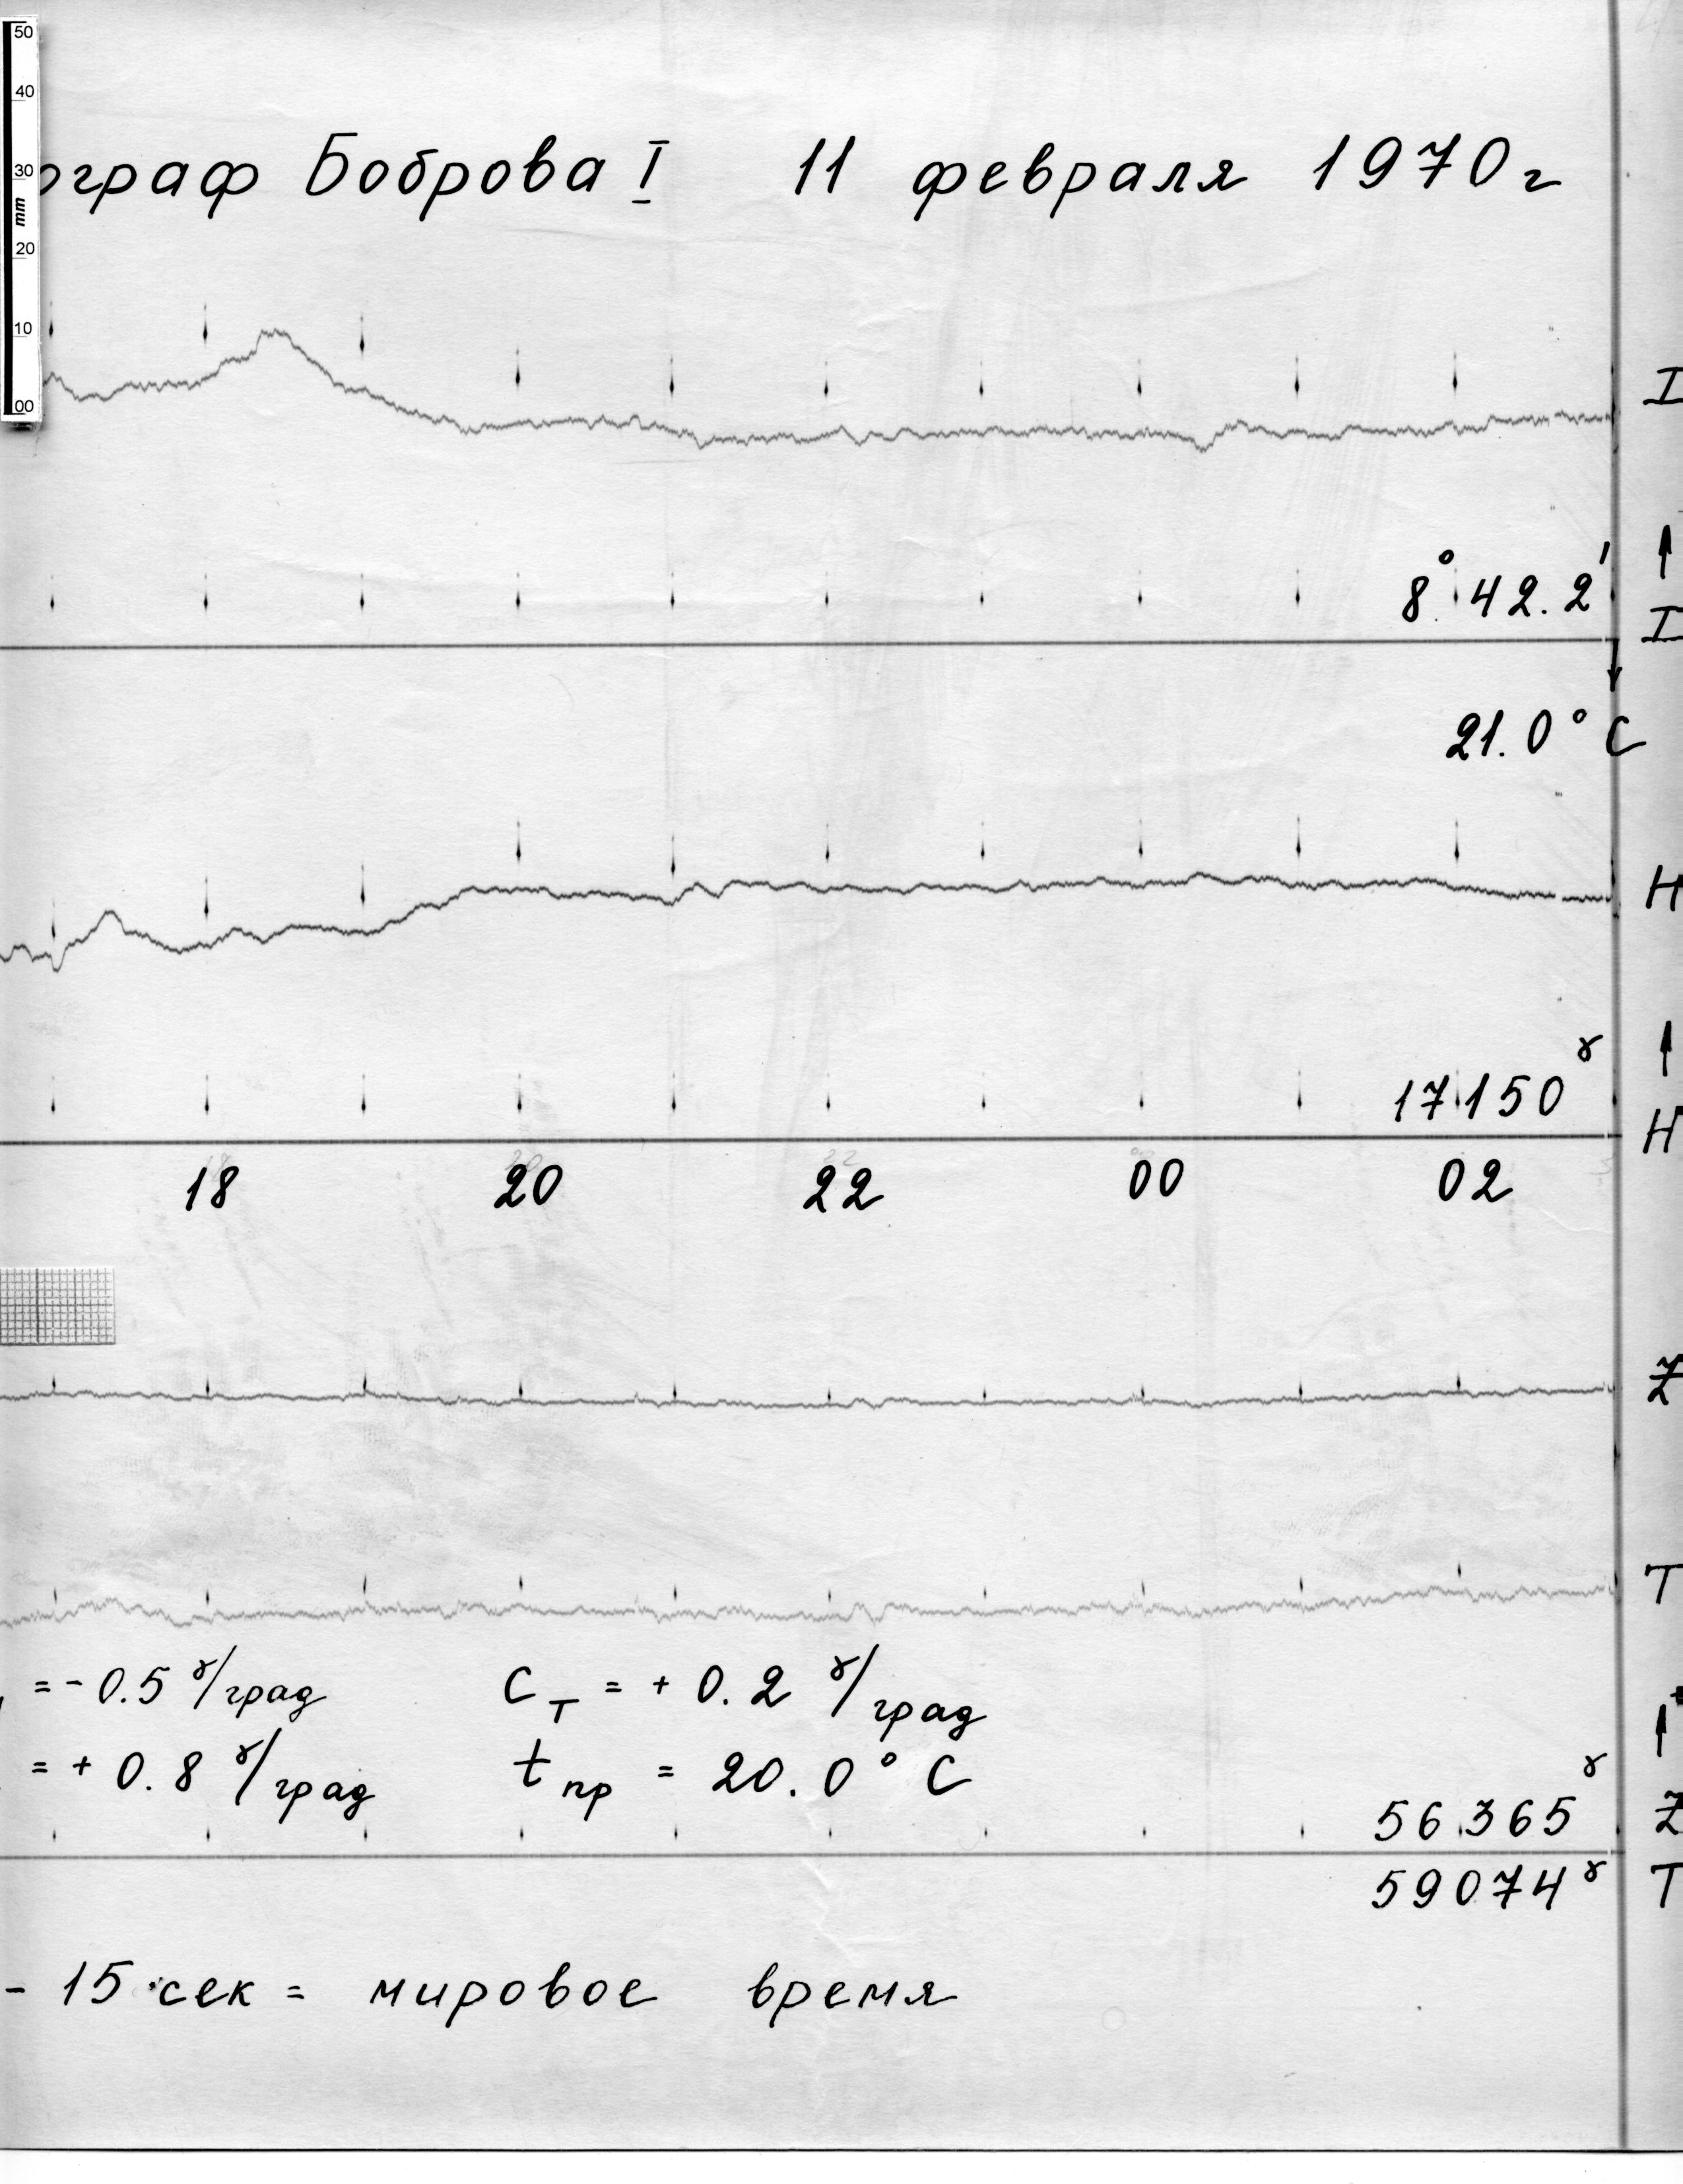 50
40
30
mm
20
10
00
ограф Боброва I 11 февраля 1970 г
I
8° 42.2'
I
21.0° C
H
17150 γ
H
18 20 22 00 02
Z
T
= - 0.5 γ/град C T = + 0.2 γ/град
= + 0.8 γ/град t пр = 20.0° C
56365 γ Z
59074 γ T
- 15 сек = мировое время